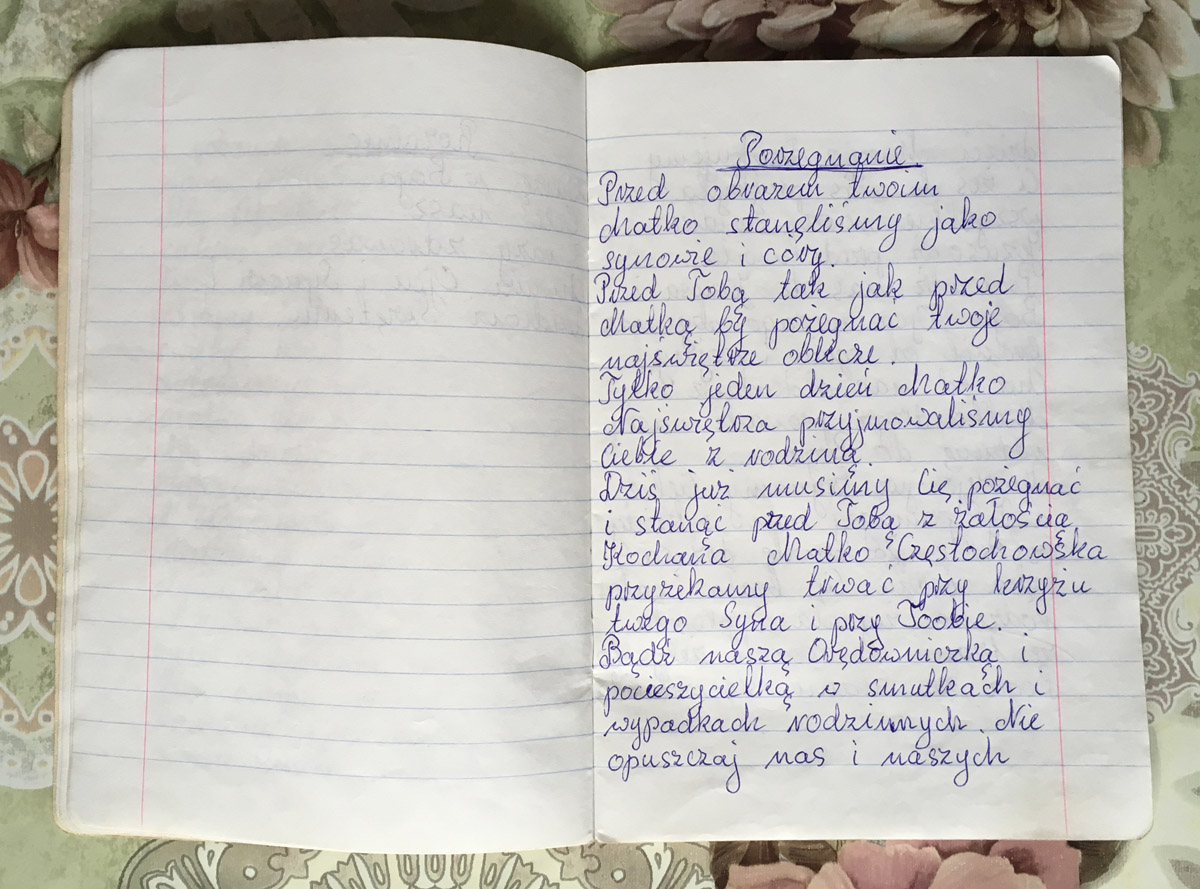 Pożegnanie.
Przed obrazem twoim
Matko stanęliśmy jako
synowie i córy.
Przed Tobą tak jak przed
Matką by pożegnać twoje
najświętsze oblicze.
Tylko jeden dzień Matko
Najświętsza przyjmowaliśmy
Ciebie z rodziną.
Dziś już musimy Cię pożegnać
i stanąć przed Tobą z żałością.
Kochana Matko Częstochowska
przyrzekamy trwać przy krzyżu
twego Syna i przy Toobie.
Bądź naszą Orędowniczką i
pocieszycielką w smutkach i
wypadkach rodzinnych. Nie
opuszczaj nas i naszych